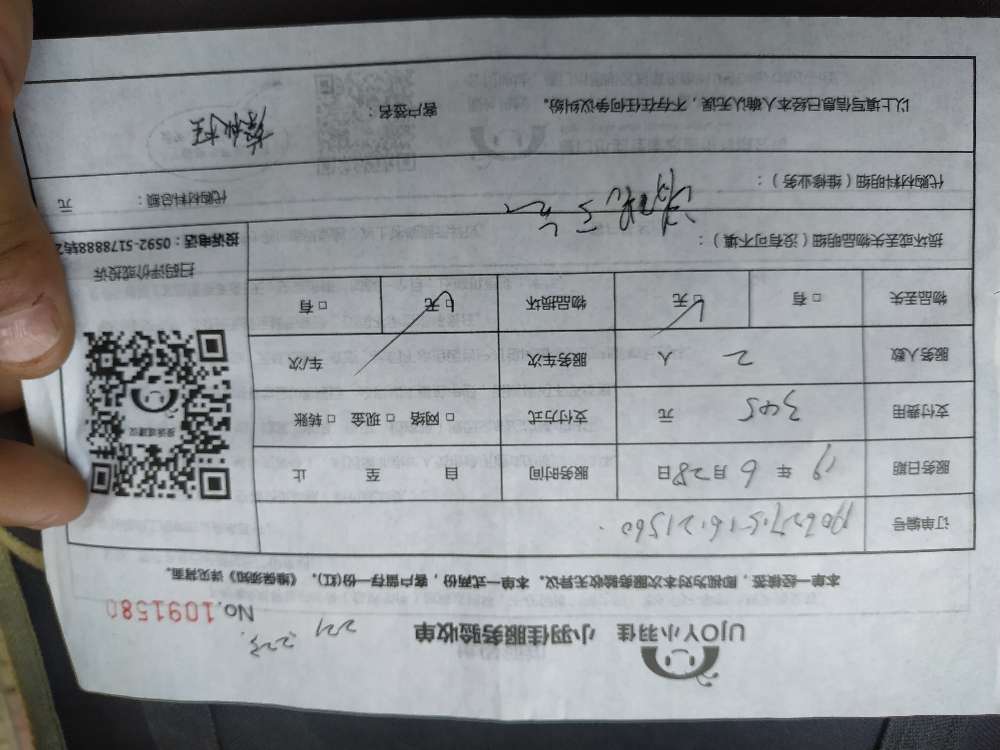 UJOY小羽佳 小羽佳服务验收单
No.1091580
本单一经接签，即视为对本次服务验收无异议。本单一式两份，客户留存一份(红)，《维保须知》详见背面。
订单编号
服务日期 19 年 6 月 28 日 服务时间 自 至 止
支付费用 345 元 支付方式 □ 网络 □ 现金 □ 转账
服务人数 2 人 服务车次 车/次
物品丢失 □ 有 无 物品损坏 □ 有 无
损坏或丢失物品明细（没有可不填）：
代购材料明细（维修业务）：
代购材料总额： 元
以上填写信息已经本人确认无误，不存在任何争议纠纷。 客户签名：
投诉或建议
扫码评价或投诉
投诉电话：0592-5178888转2